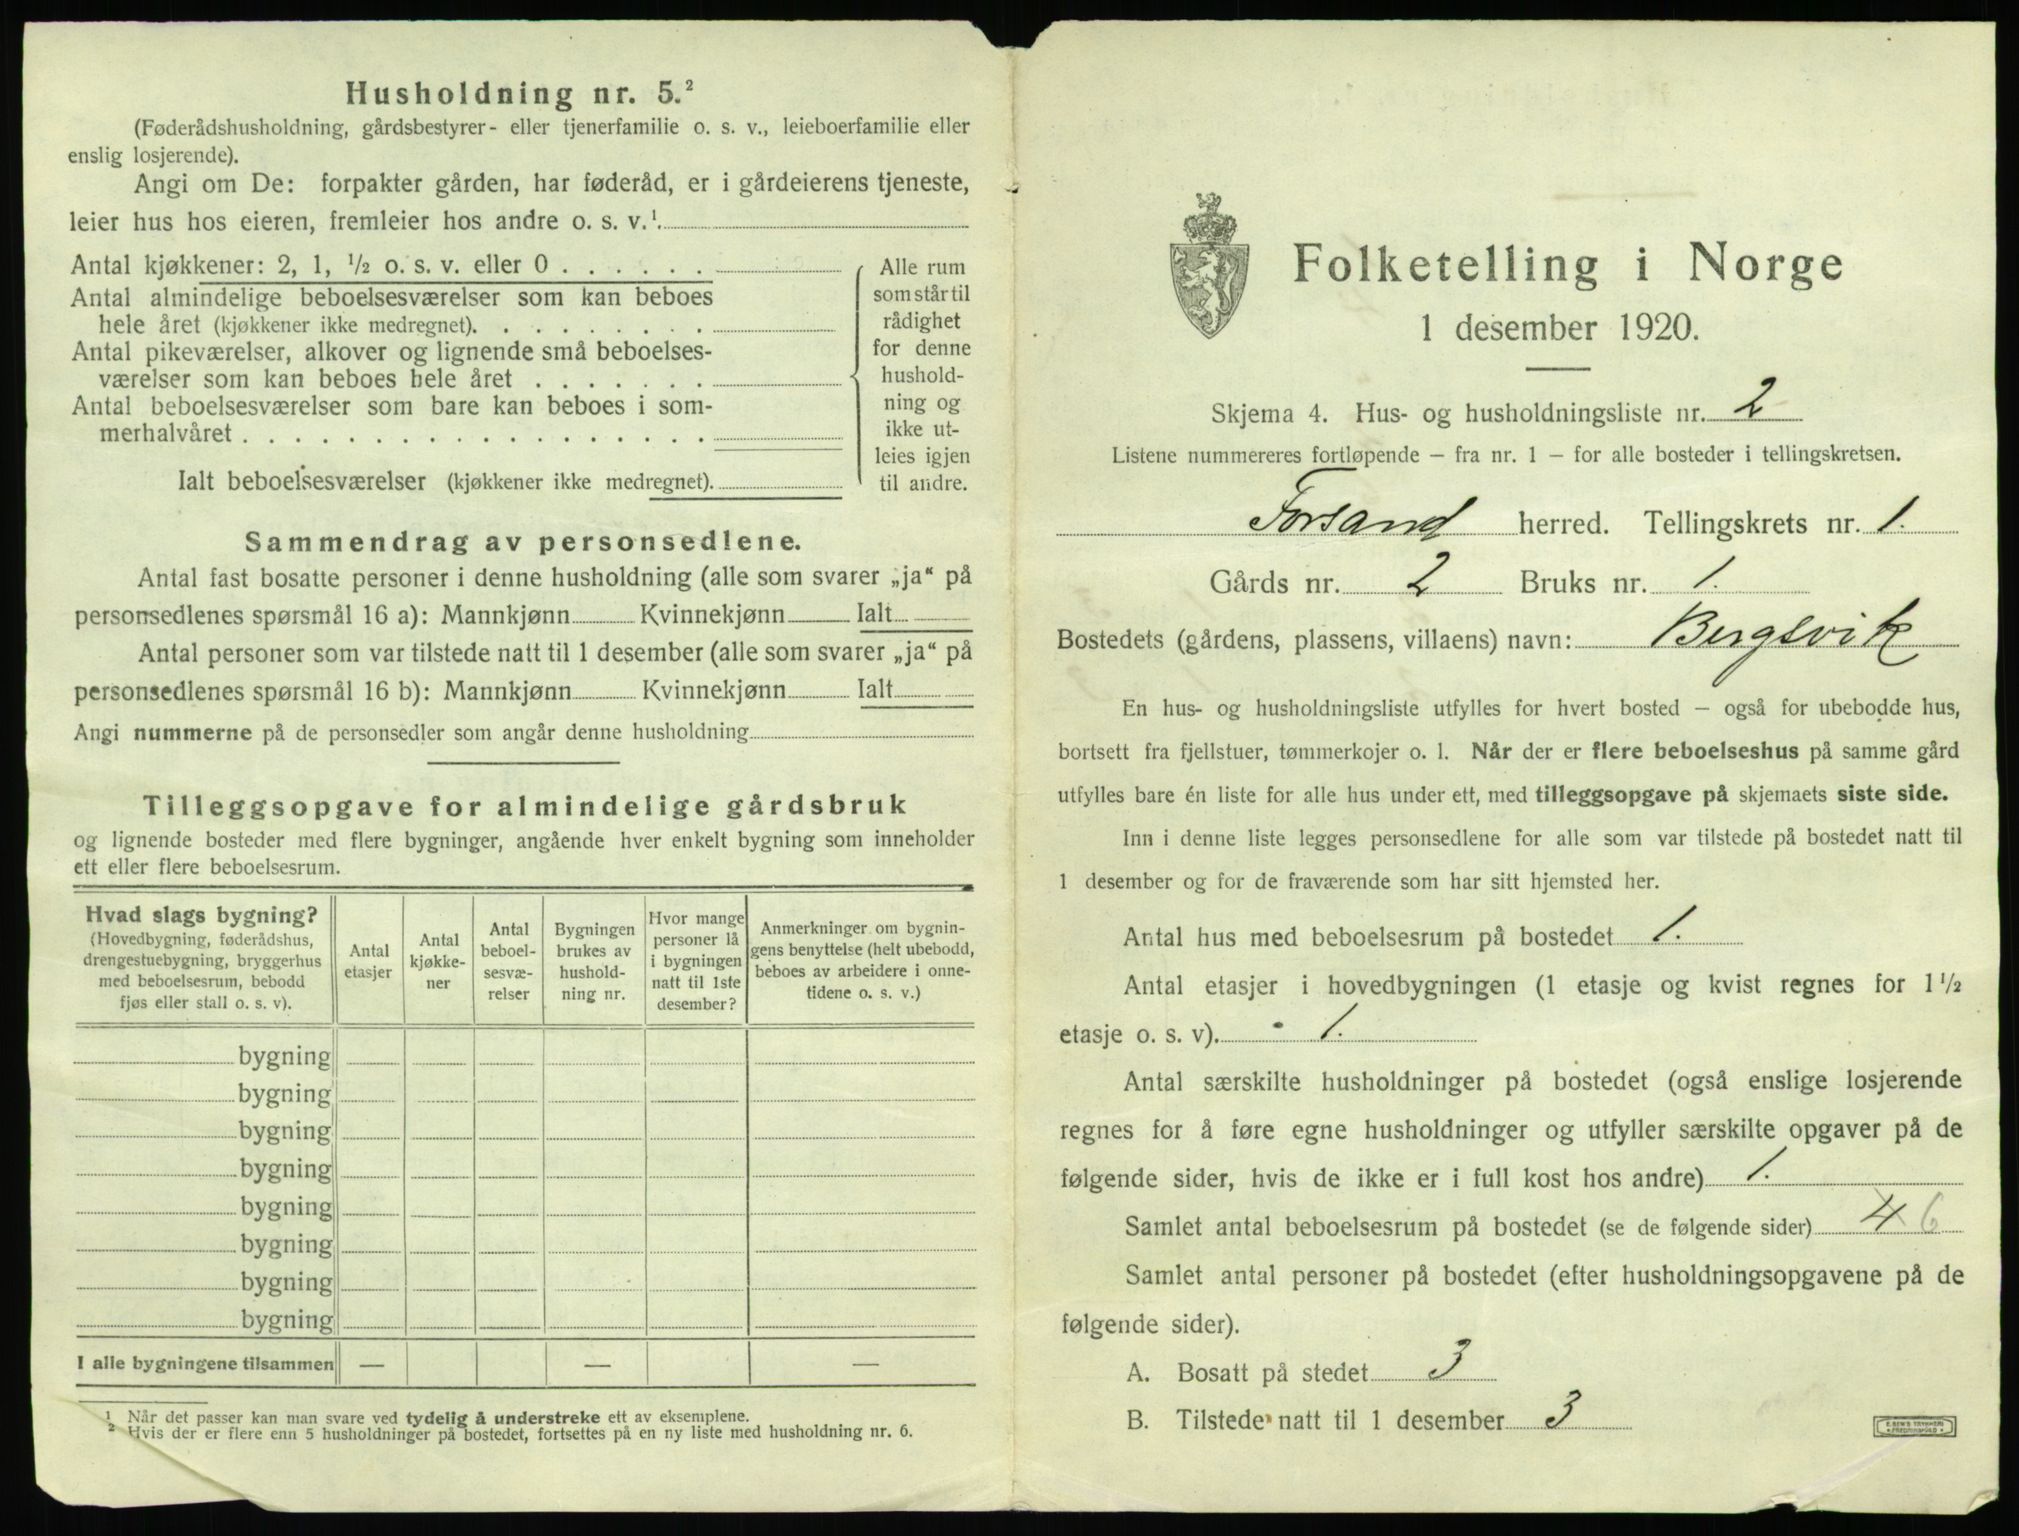 Husholdning nr. 5.²
(Føderådshusholdning, gårdsbestyrer- eller tjenerfamilie o. s. v., leieboerfamilie eller
enslig losjerende).
Angi om De: forpakter gården, har føderåd, er i gårdeierens tjeneste,
leier hus hos eieren, fremleier hos andre o. s. v.¹.
Antal kjøkkener: 2, 1, ½ o. s. v. eller 0 . . . . . .
Antal almindelige beboelsesværelser som kan beboes
hele året (kjøkkener ikke medregnet). . . . . . . . .
Antal pikeværelser, alkover og lignende små beboelses-
værelser som kan beboes hele året . . . . . . .
Antal beboelsesværelser som bare kan beboes i som-
merhalvåret . . . . . . . . . . . . . . . . . .
Ialt beboelsesværelser (kjøkkener ikke medregnet).
Alle rum
som står til
rådighet
for denne
hushold-
ning og
ikke ut-
leies igjen
til andre.
Sammendrag av personsedlene.
Antal fast bosatte personer i denne husholdning (alle som svarer „ja“ på
personsedlenes spørsmål 16 a): Mannkjønn Kvinnekjønn Ialt
Antal personer som var tilstede natt til 1 desember (alle som svarer „ja“ på
personsedlenes spørsmål 16 b): Mannkjønn Kvinnekjønn Ialt
Angi nummerne på de personsedler som angår denne husholdning
Tilleggsopgave for almindelige gårdsbruk
og lignende bosteder med flere bygninger, angående hver enkelt bygning som inneholder
ett eller flere beboelsesrum.
Hvad slags bygning?
(Hovedbygning, føderådshus,
drengestuebygning, bryggerhus
med beboelsesrum, bebodd
fjøs eller stall o. s. v).
Antal
etasjer
Antal
kjøkke-
ner
Antal
beboel-
sesvæ-
relser
Bygningen
brukes av
hushold-
ning nr.
Hvor mange
personer lå
i bygningen
natt til 1ste
desember?
Anmerkninger om bygnin-
gens benyttelse (helt ubebodd,
beboes av arbeidere i onne-
tidene o. s. v.)
bygning
bygning
bygning
bygning
bygning
bygning
bygning
bygning
I alle bygningene tilsammen — — —
¹ Når det passer kan man svare ved tydelig å understreke ett av eksemplene.
² Hvis der er flere enn 5 husholdninger på bostedet, fortsettes på en ny liste med husholdning nr. 6.
Folketelling i Norge
1 desember 1920.
Skjema 4. Hus- og husholdningsliste nr. 2
Listene nummereres fortløpende – fra nr. 1 – for alle bosteder i tellingskretsen.
Forsand herred. Tellingskrets nr. 1.
Gårds nr. 2 Bruks nr. 1.
Bostedets (gårdens, plassens, villaens) navn: Bergsvik
En hus- og husholdningsliste utfylles for hvert bosted – også for ubebodde hus,
bortsett fra fjellstuer, tømmerkojer o. l. Når der er flere beboelseshus på samme gård
utfylles bare én liste for alle hus under ett, med tilleggsopgave på skjemaets siste side.
Inn i denne liste legges personsedlene for alle som var tilstede på bostedet natt til
1 desember og for de fraværende som har sitt hjemsted her.
Antal hus med beboelsesrum på bostedet 1.
Antal etasjer i hovedbygningen (1 etasje og kvist regnes for 1½
etasje o. s. v). 1.
Antal særskilte husholdninger på bostedet (også enslige losjerende
regnes for å føre egne husholdninger og utfyller særskilte opgaver på de
følgende sider, hvis de ikke er i full kost hos andre) 1.
Samlet antal beboelsesrum på bostedet (se de følgende sider) 4 6
Samlet antal personer på bostedet (efter husholdningsopgavene på de
følgende sider).
A. Bosatt på stedet 3
B. Tilstede natt til 1 desember 3